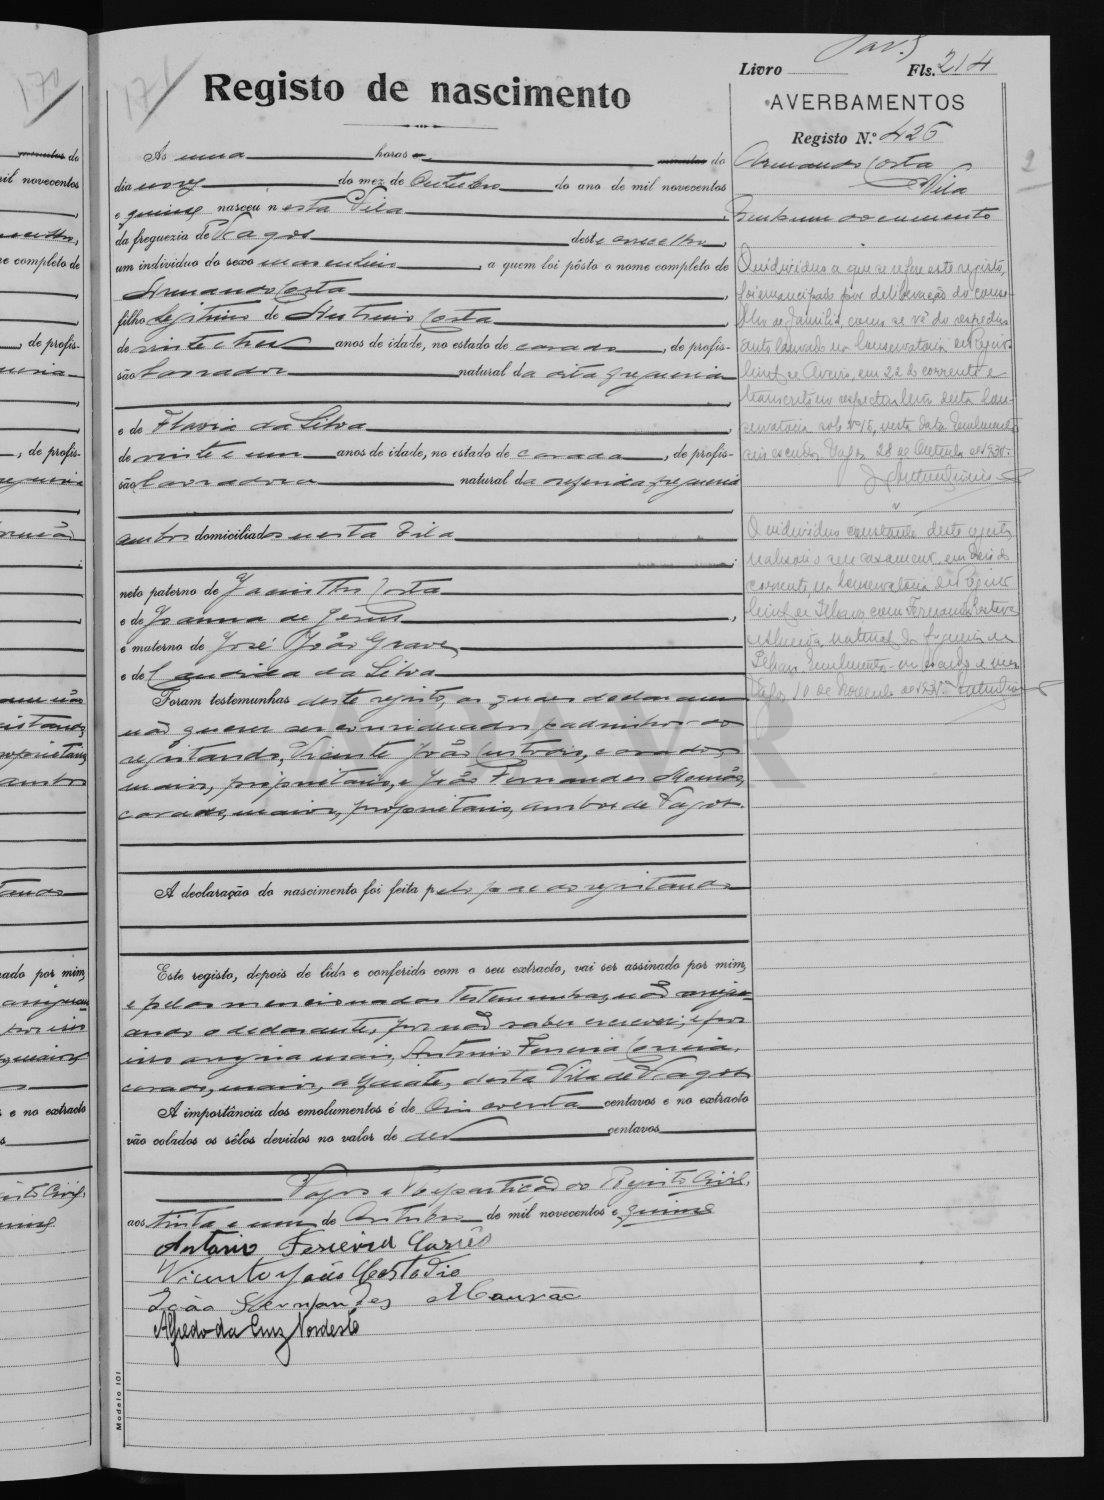 171
Registo de nascimento
Livro Fls. 214
AVERBAMENTOS
Registo N.º 426
Armando Costa
Vila
Nenhum documento
Ás uma horas e minutos do
dia nove do mez de Outubro do ano de mil novecentos
e quinze nasceu nesta Vila
da freguezia de Vagos deste concelho,
um individuo do sexo masculino, a quem foi pôsto o nome completo de
Armando Costa,
filho legitimo de Antonio Costa,
de vinte e tres anos de idade, no estado de casado, de profis-
são lavrador natural da dita freguesia
e de Flavia da Silva,
de vinte e um anos de idade, no estado de casada, de profis-
são lavradora natural da referida freguesia
ambos domiciliados nesta Vila
neto paterno de Jacintho Costa
e de Joanna de Jesus,
e materno de José João Grave,
e de Candida da Silva
Foram testemunhas deste registo, os quaes declararam
não querer ser considerados padrinhos do
registando, Vicente João Custodio, casado,
maior, proprietario, e João Fernandes Mourão,
casado, maior, proprietario, ambos de Vagos.
A declaração do nascimento foi feita pelo pae do registando
Este registo, depois de lido e conferido com o seu extracto, vai ser assinado por mim,
e pelas mencionadas testemunhas, não assi-
ando o declarante, por não saber escrever; e por
isso assigna mais, Antonio Ferreira
casado, maior, desta Vila de Vagos
A importância dos emolumentos é de cincoenta centavos e no extracto
vão colados os sêlos devidos no valor de dez centavos
Vagos e Repartição do Registo Civil,
aos trinta e um de Outubro de mil novecentos e quinze
Antonio Ferreira
Vicente João Custodio
João Fernandes Mourão
Alfredo da Cruz Nordeste
O individuo a que se refere este registo,
foi emancipado por deliberação do conse-
lho de familia, como se vê do respectivo
auto lavrado na Conservatoria do Registo
Civil de Aveiro, em 22 do corrente e
transcrito no respectivo livro desta Con-
servatoria sob Nº 15, nesta data. Emolumento
escudos. Vagos 28 de Outubro de
O individuo constante deste registo,
realisou o seu casamento, em dois do
corrente, na Conservatoria do Registo
Civil de Ilhavo com
natural da freguesia de
Ilhavo. Emolumento
Vagos, 10 de Novembro de
Modelo 101